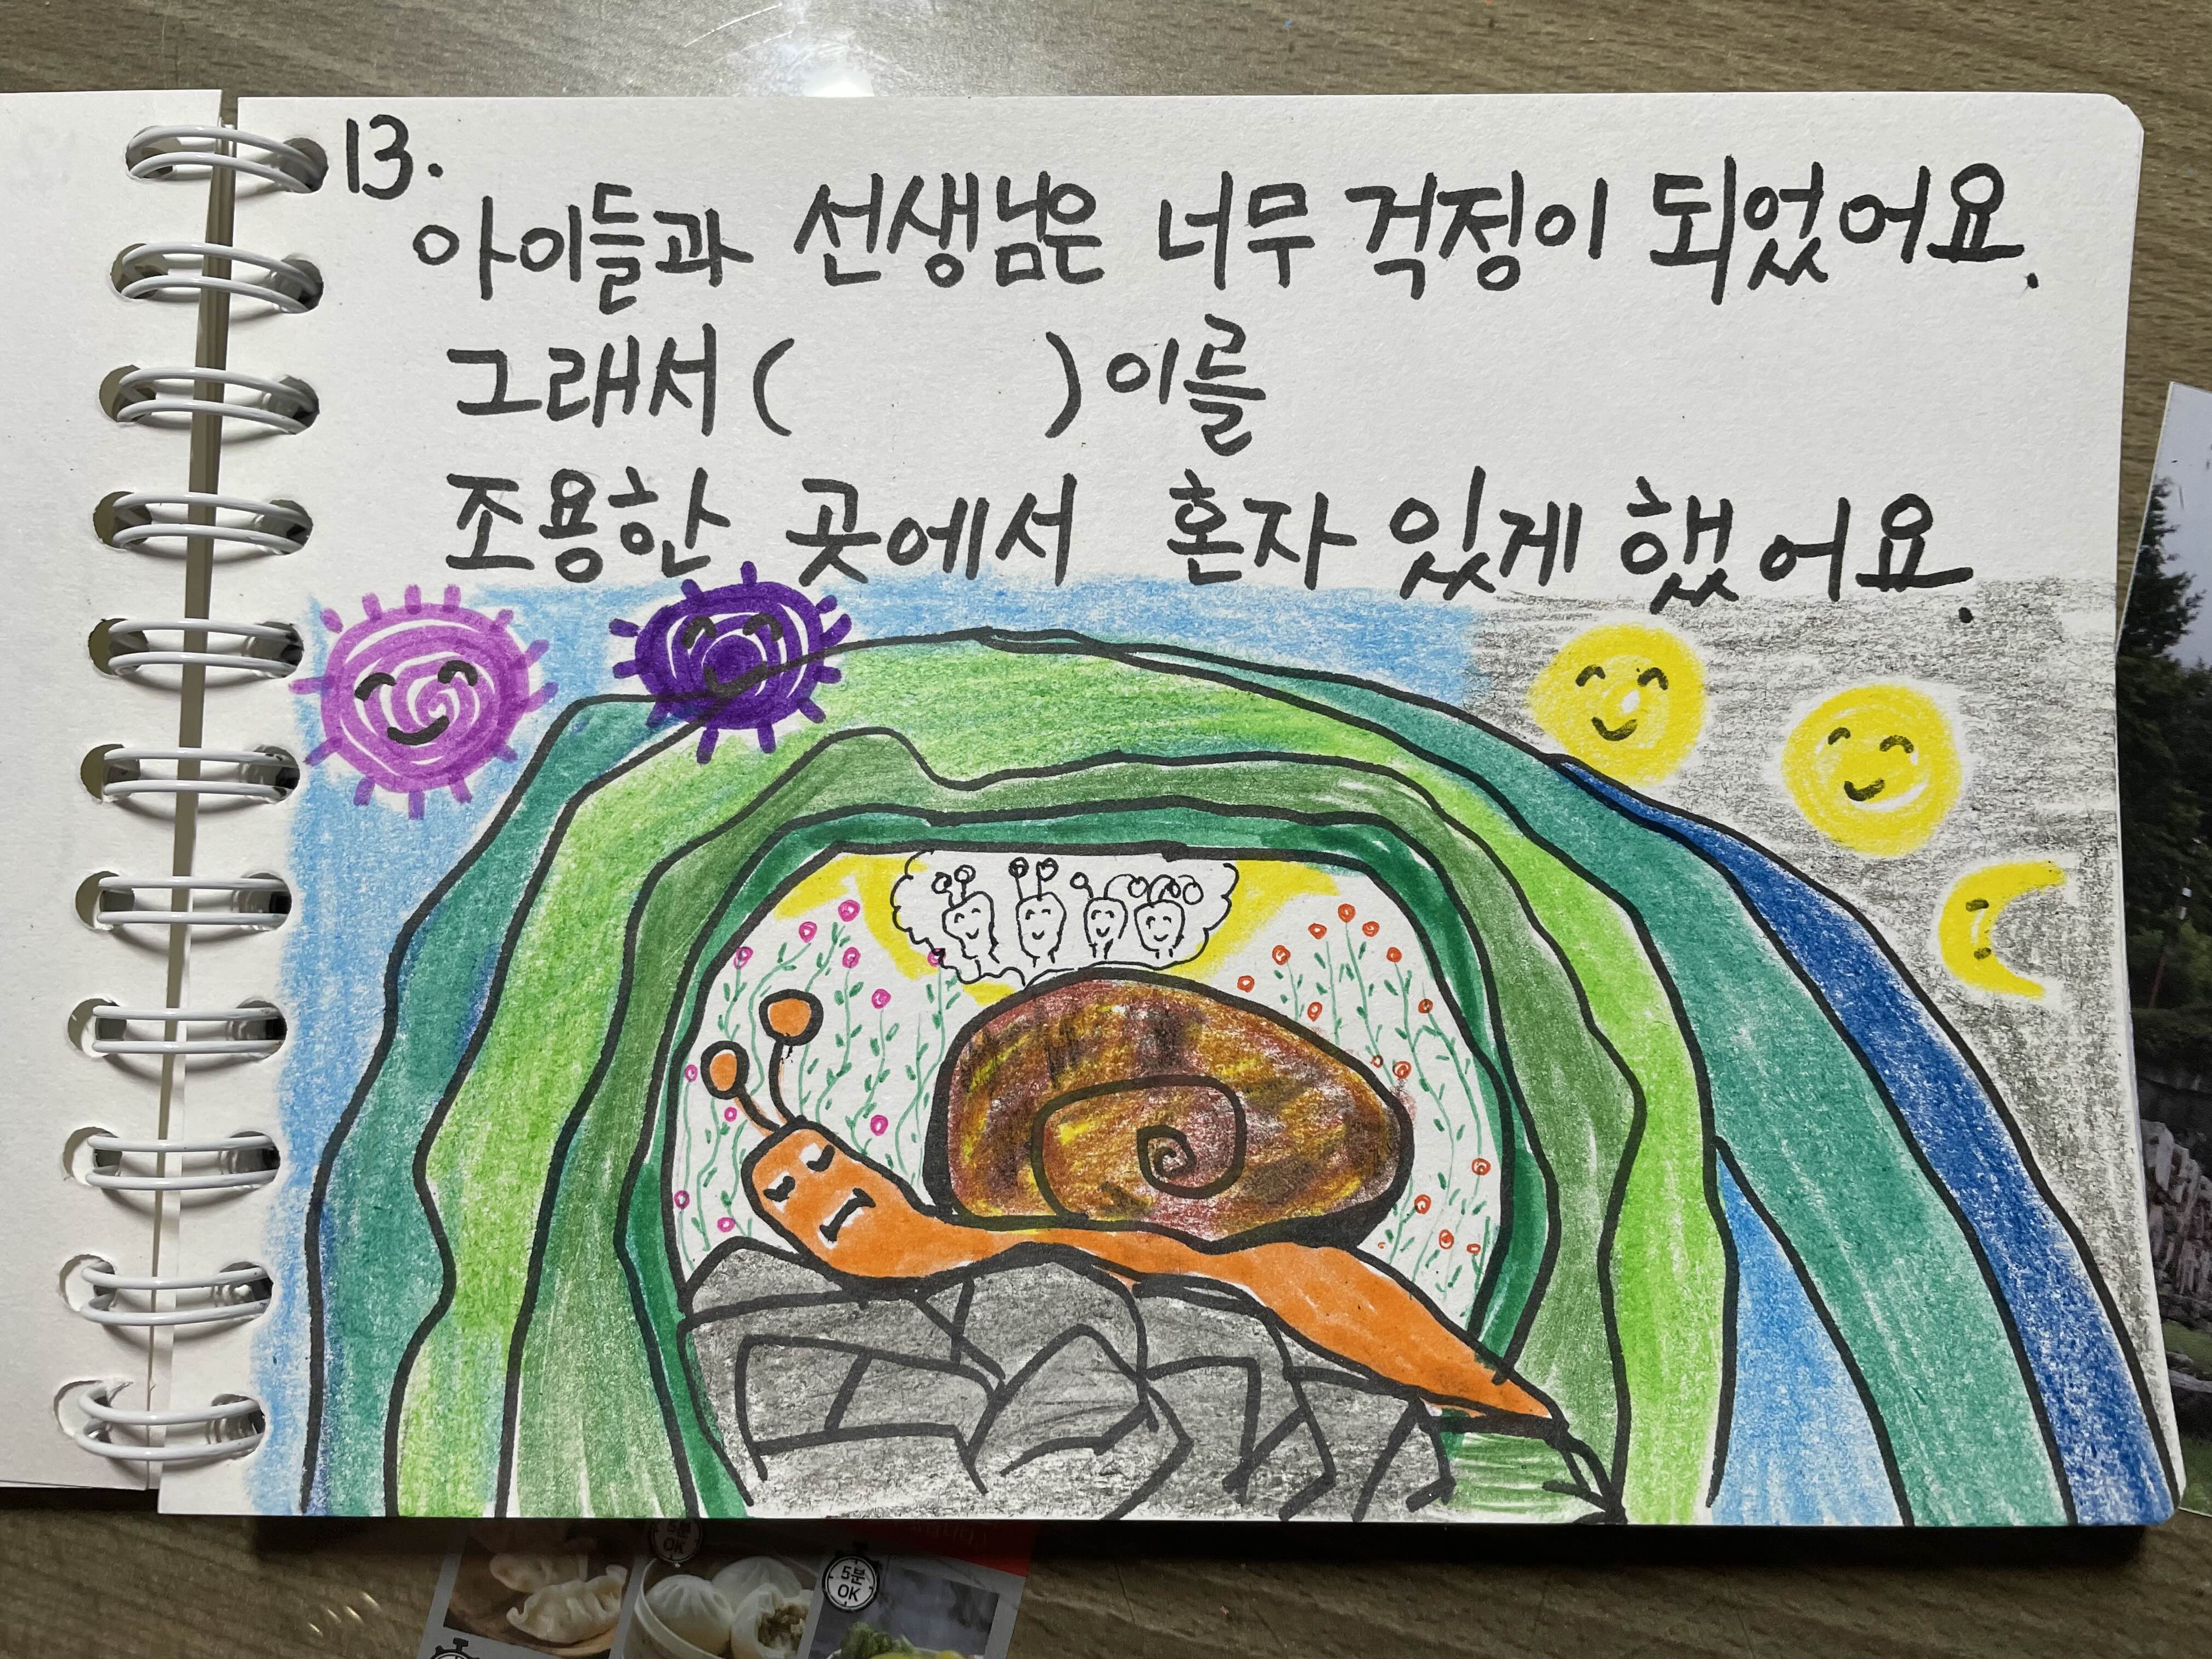 13.
아이들과 선생님은 너무 걱정이 되었어요.
그래서 (          ) 이를
조용한 곳에서 혼자 있게 했어요.
5분
OK
5분
OK